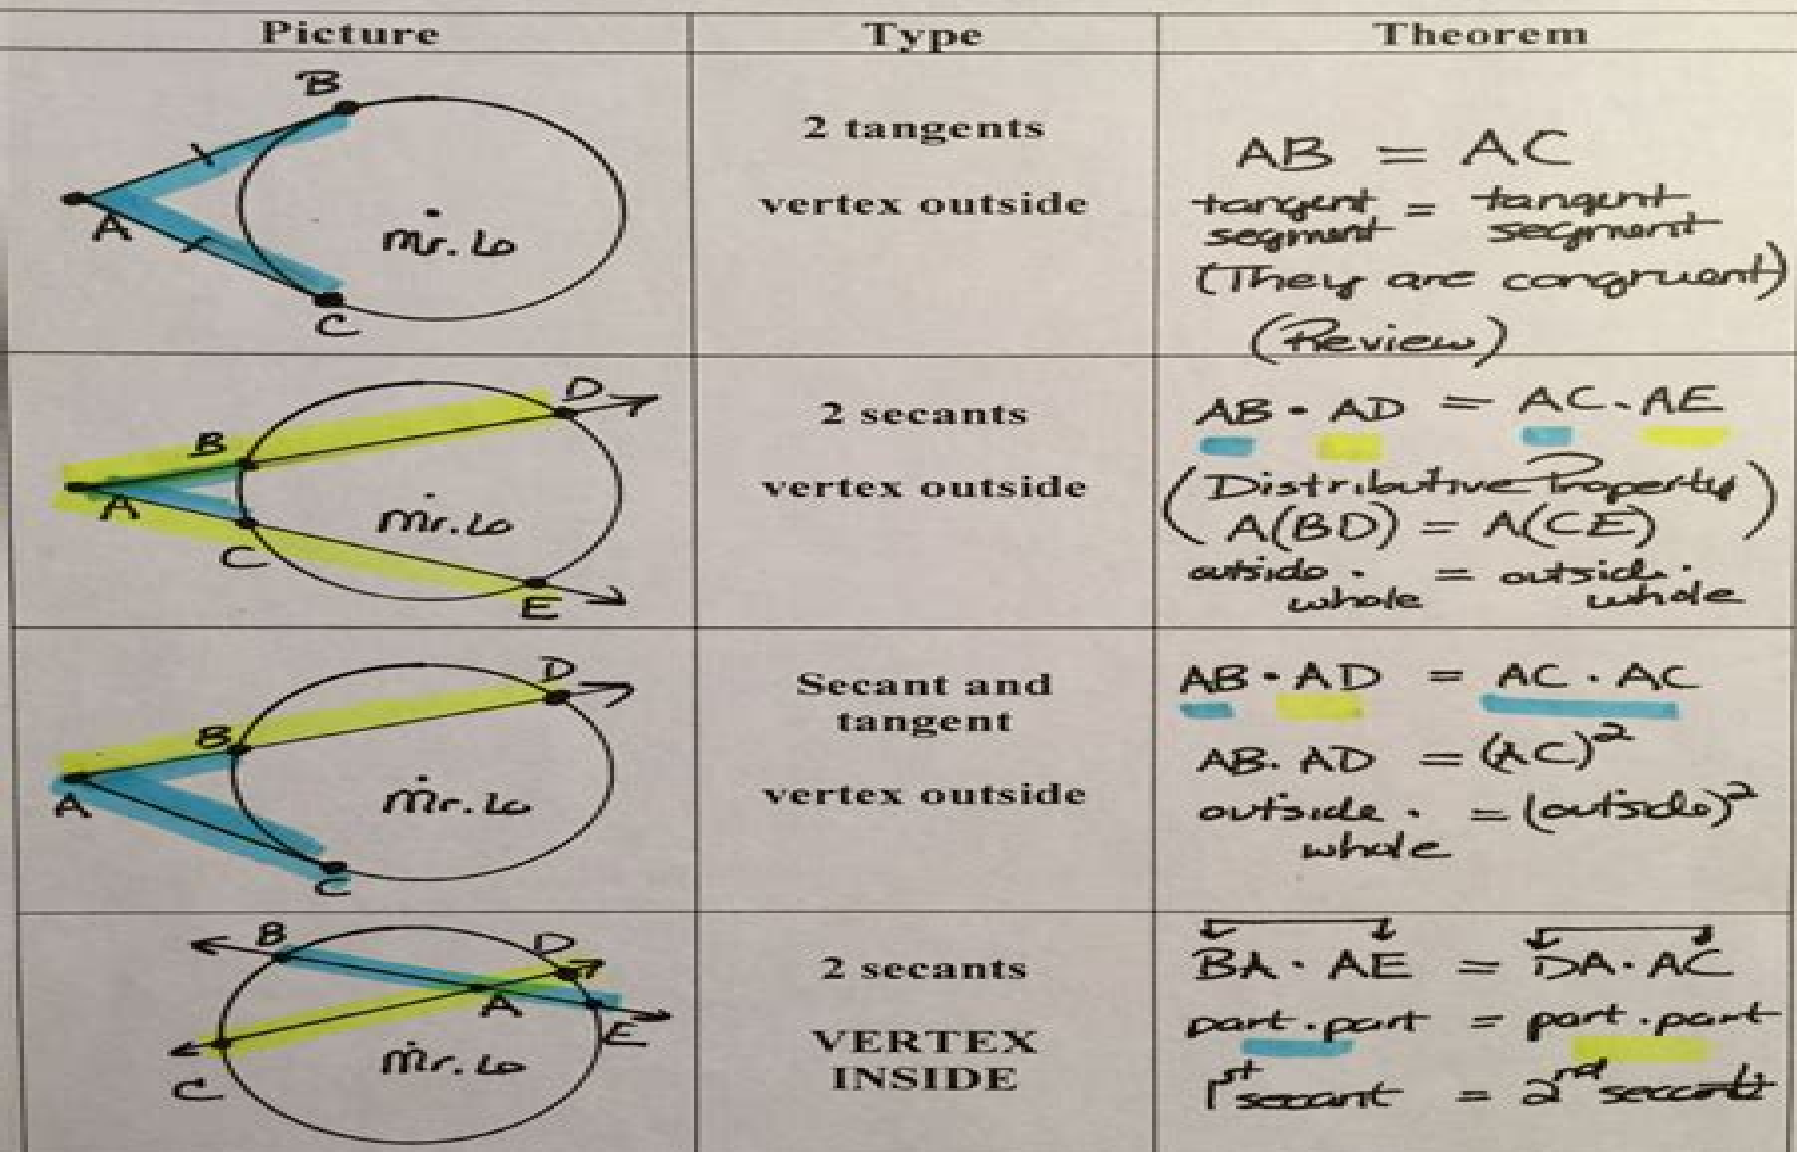 Picture Type Theorem
B
A
C
mr. Lo
2 tangents
vertex outside
AB = AC
tangent segment = tangent segment
(They are congruent)
(Review)
D
B
A
C
E
mr. Lo
2 secants
vertex outside
AB · AD = AC · AE
(Distributive Property)
A(BD) = A(CE)
outside · whole = outside · whole
D
B
A
C
mr. Lo
Secant and
tangent
vertex outside
AB · AD = AC · AC
AB · AD = (AC)²
outside · whole = (outside)²
B
D
A
E
C
mr. Lo
2 secants
VERTEX
INSIDE
BA · AE = DA · AC
part · part = part · part
1st secant = 2nd secant